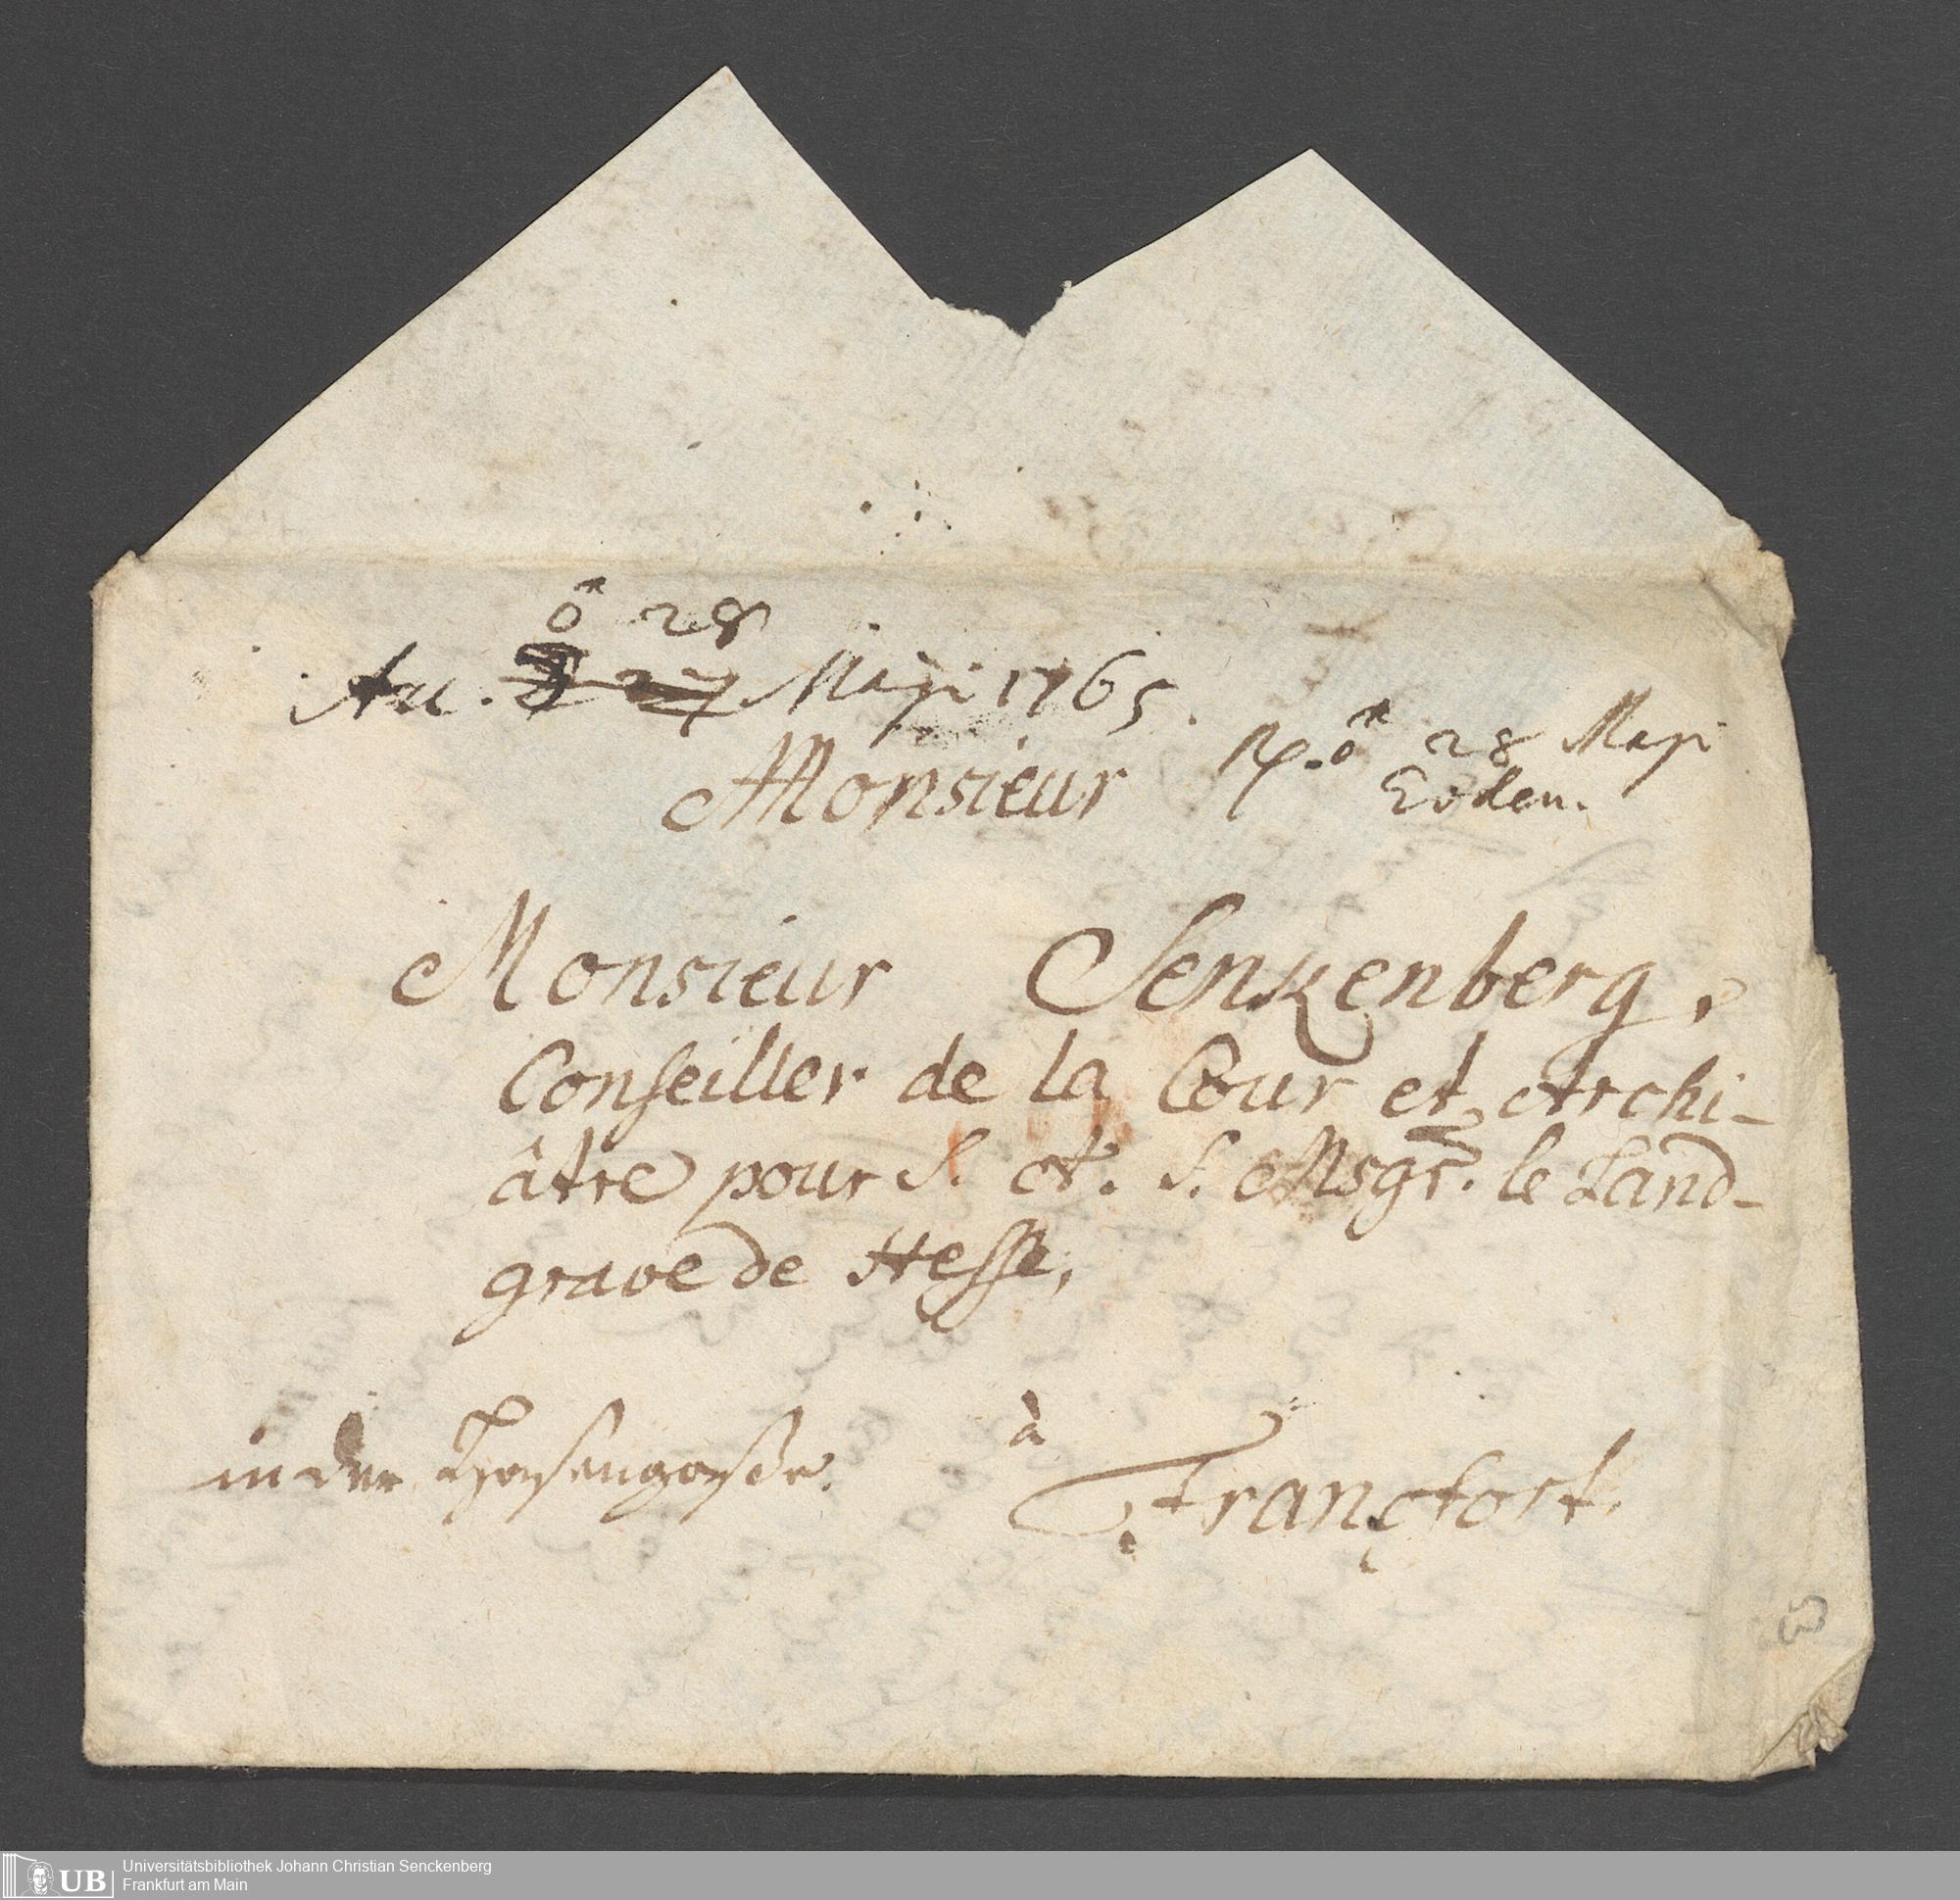 ♂ 28
Acc. ☿ 27 Maji 1765.
Rp. ♂ 28 Maji
Eodem.
Monsieur
Monsieur Senkenberg,
Conseiller de la Cour et Archi-
âtre pour S. A. S. Msgr. le Land-
grave de Hesse,
in der Hasengasse.
à
Francfort.
3
UB
Universitätsbibliothek Johann Christian Senckenberg
Frankfurt am Main